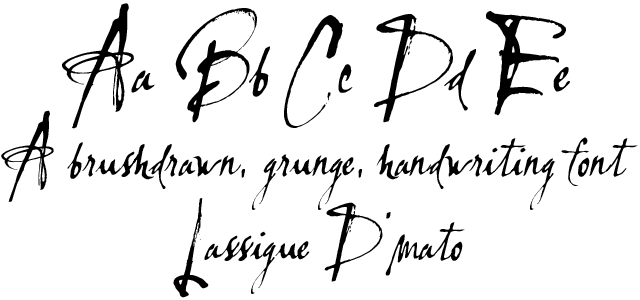 Aa Bb Cc Dd Ee
A brushdrawn, grunge, handwriting font
Lassigue D'mato